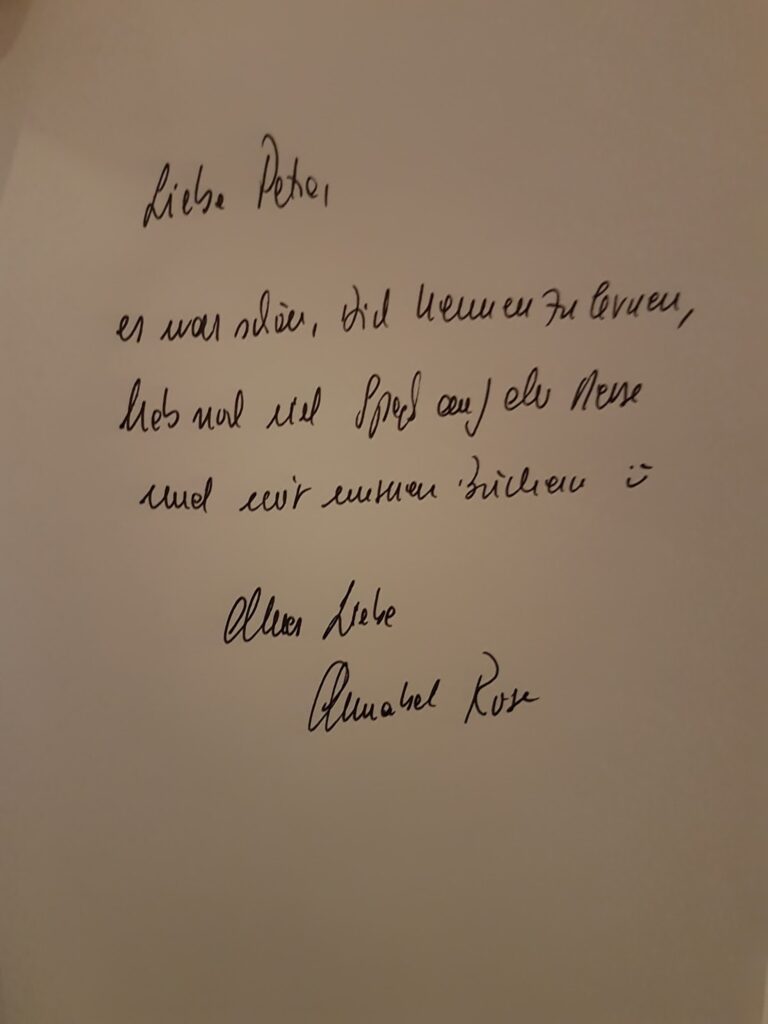 Liebe Petra,
es war schön, Dich kennenzulernen,
hab noch viel Spaß auf der Messe
und mit meinen Büchern :)
Alles Liebe
Annabel Rose